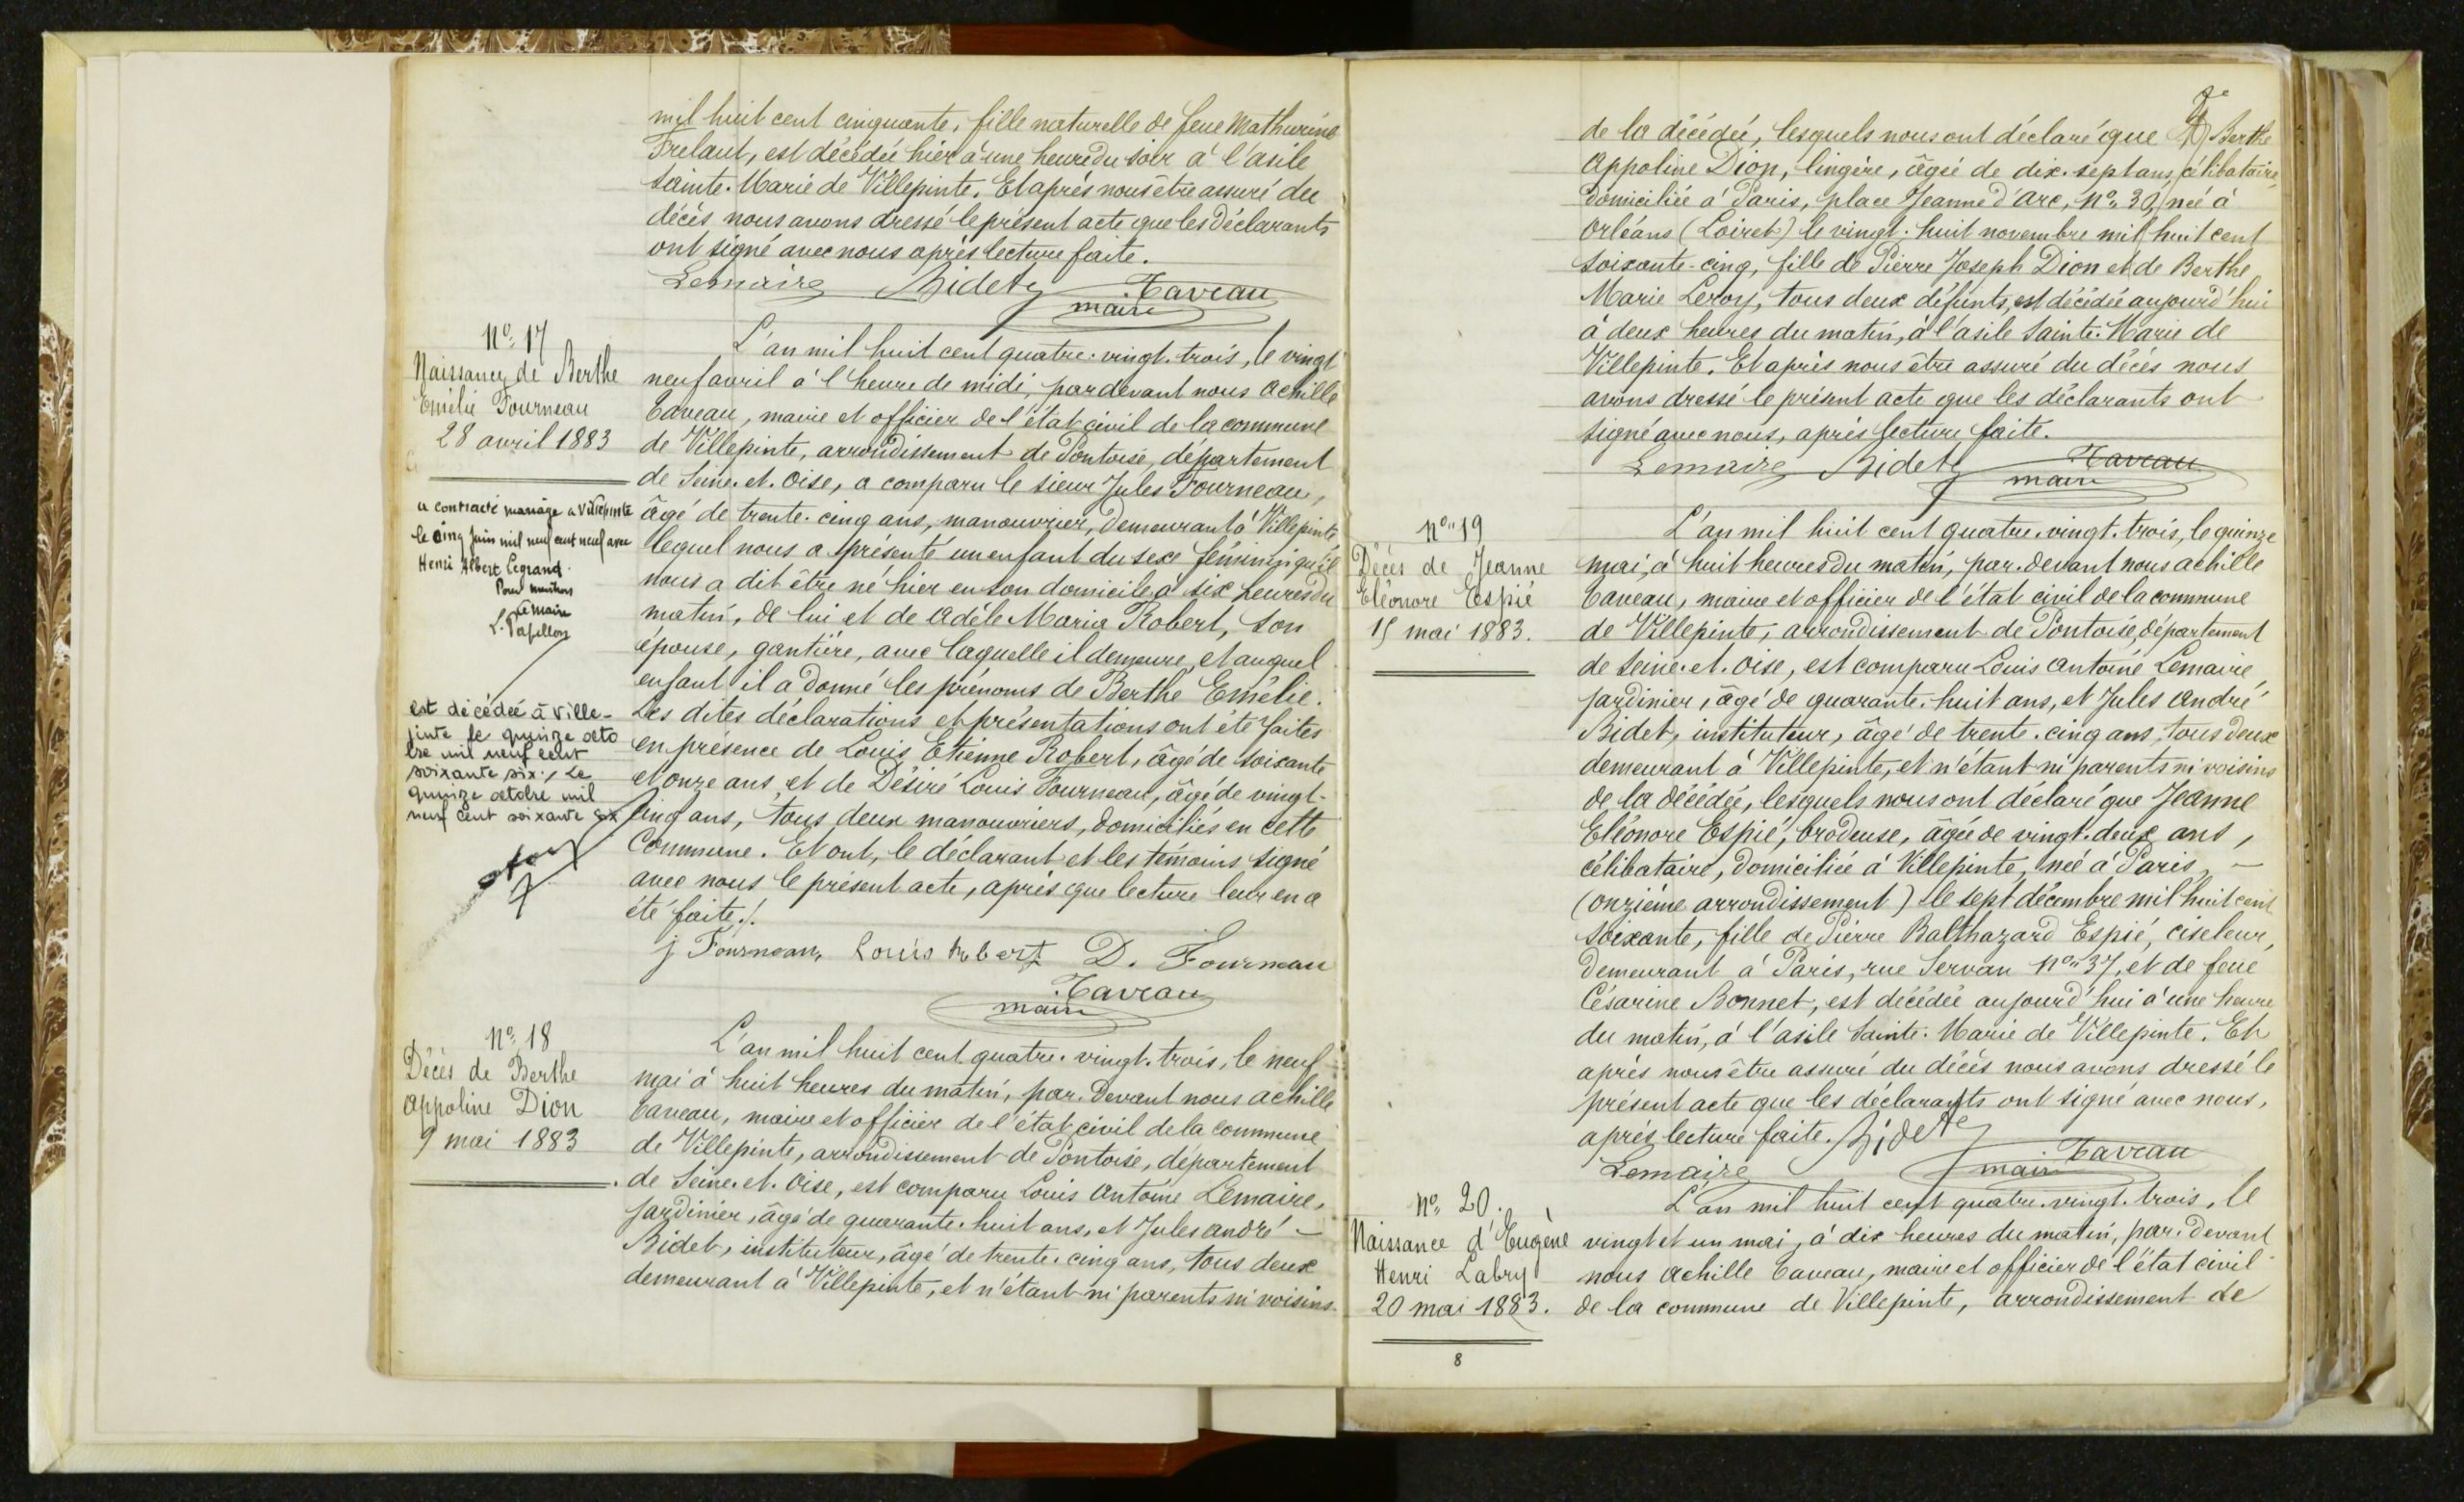 mil huit cent cinquante, fille naturelle de feue Mathurine
Frelaut, est décédée hier à une heure du soir à l'asile
Sainte-Marie de Villepinte. Et après nous être assuré du
décès nous avons dressé le présent acte que les déclarants
ont signé avec nous après lecture faite.
Lemaire Bidet Taveau
maire
N° 17
Naissance de Berthe
Emélie Fourneau
28 avril 1883
a contracté mariage a Villepinte
le cinq juin mil neuf cent neuf avec
Henri Albert Legrand.
Pour mention
Le Maire
L. Papillon
est décédée à Ville-
pinte le quinze octo
bre mil neuf cent
soixante six./. Le
quinze octobre mil
neuf cent soixante six
L'an mil huit cent quatre-vingt-trois, le vingt
neuf avril à l'heure de midi, par devant nous Achille
Taveau, maire et officier de l'état civil de la commune
de Villepinte, arrondissement de Pontoise, département
de Seine-et-Oise, a comparu le sieur Jules Fourneau,
âgé de trente-cinq ans, manouvrier, demeurant à Villepinte
lequel nous a présenté un enfant du sexe féminin qu'il
nous a dit être né hier en son domicile à six heures du
matin, de lui et de Adèle Maria Robert, son
épouse, gantière, avec laquelle il demeure, et auquel
enfant il a donné les prénoms de Berthe Emélie.
Les dites déclarations et présentations ont été faites
en présence de Louis Etienne Robert, âgé de soixante
et onze ans, et de Désiré Louis Fourneau, âgé de vingt-
cinq ans, tous deux manouvriers, domiciliés en cette
Commune. Et ont, le déclarant et les témoins signé
avec nous le présent acte, après que lecture leur en a
été faite./.
j Fourneau, Louis Robert D. Fourneau
Taveau
maire
N° 18
Décès de Berthe
Appoline Dion
9 mai 1883
L'an mil huit cent quatre-vingt-trois, le neuf
mai à huit heures du matin, par-devant nous Achille
Taveau, maire et officier de l'état civil de la commune
de Villepinte, arrondissement de Pontoise, département
de Seine-et-Oise, est comparu Louis Antoine Lemaire,
jardinier, âgé de quarante-huit ans, et Jules André -
Bidet, instituteur, âgé de trente-cinq ans, tous deux
demeurant à Villepinte, et n'étant ni parents ni voisins
de la décédée, lesquels nous ont déclaré que Berthe
Appoline Dion, lingère, âgée de dix-sept ans, célibataire,
domiciliée à Paris, place Jeanne d'Arc, N° 30, née à
Orléans (Loiret) le vingt-huit novembre mil huit cent
soixante-cinq, fille de Pierre Joseph Dion et de Berthe
Marie Leroy, tous deux défunts, est décédée aujourd'hui
à deux heures du matin, à l'asile Sainte-Marie de
Villepinte. Et après nous être assuré du décès nous
avons dressé le présent acte que les déclarants ont
signé avec nous, après lecture faite.
Lemaire Bidet Taveau
maire
N° 19
Décès de Jeanne
Eléonore Espié
15 mai 1883.
L'an mil huit cent quatre-vingt-trois, le quinze
mai, à huit heures du matin, par-devant nous Achille
Taveau, maire et officier de l'état civil de la commune
de Villepinte, arrondissement de Pontoise, département
de Seine-et-Oise, est comparu Louis Antoine Lemaire,
jardinier, âgé de quarante-huit ans, et Jules André
Bidet, instituteur, âgé de trente-cinq ans, tous deux
demeurant à Villepinte, et n'étant ni parents ni voisins
de la décédée, lesquels nous ont déclaré que Jeanne
Eléonore Espié, brodeuse, âgée de vingt-deux ans,
célibataire, domiciliée à Villepinte, née à Paris, -
(onzième arrondissement) le sept décembre mil huit cent
soixante, fille de Pierre Balthazard Espié, ciseleur,
demeurant à Paris, rue Servan N° 37, et de feue
Césarine Bonnet, est décédée aujourd'hui à une heure
du matin, à l'asile Sainte-Marie de Villepinte. Et
après nous être assuré du décès nous avons dressé le
présent acte que les déclarants ont signé avec nous,
après lecture faite. Bidet
Lemaire Taveau
maire
N° 20.
Naissance d'Eugène
Henri Labry
20 mai 1883.
L'an mil huit cent quatre-vingt-trois, le
vingt et un mai, à dix heures du matin, par-devant
nous Achille Taveau, maire et officier de l'état civil
de la commune de Villepinte, arrondissement de
8